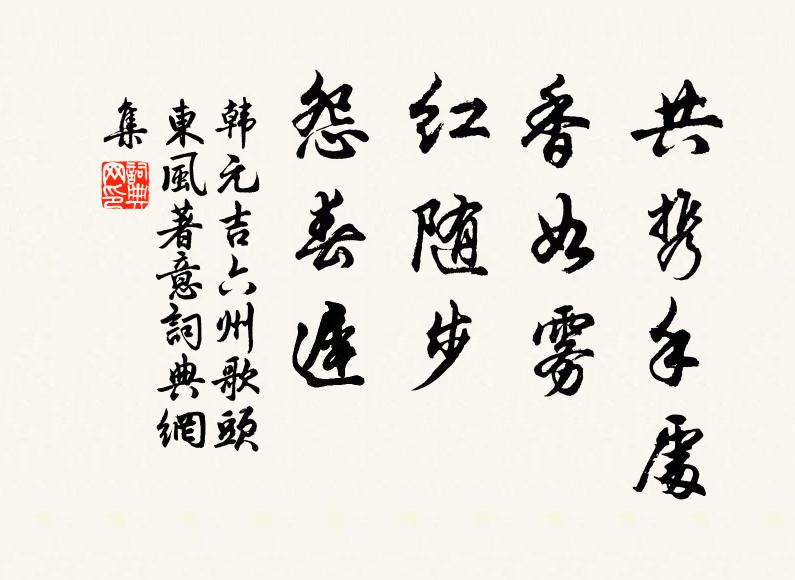 共携手處
香如雾
红随步
怨春遲
韩元吉六州歌頭
東風著意詞典網
集
詞典
网印